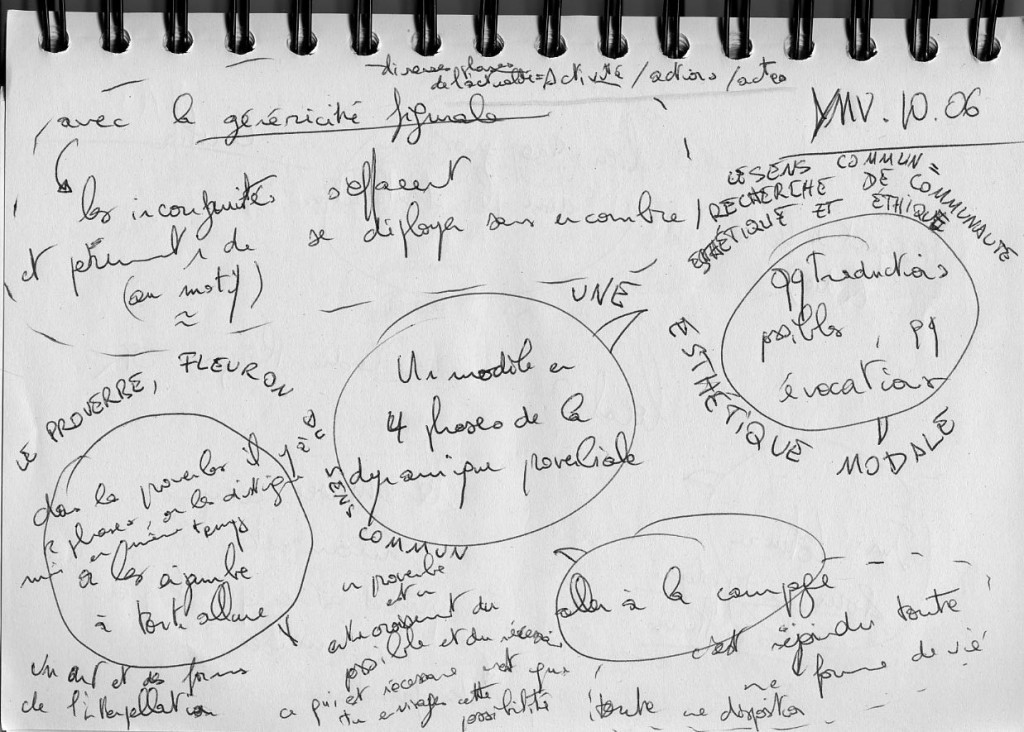 diverses phases
de l'actualité = Activité / actions / actes
avec la généricité figurale
YMV. 10. 06
les incongruités s'effacent
et permettent de se déployer sans encombre
(au motif)
≈
LE SENS COMMUN =
RECHERCHE DE COMMUNAUTÉ
ESTHÉTIQUE ET ÉTHIQUE
qq traductions
possibles, qq
évocations
UNE
ESTHÉTIQUE
MODALE
Un modèle en
4 phases de la
dynamique proverbiale
LE PROVERBE, FLEURON DU
SENS COMMUN
dans le proverbe il y a
phases, on les distingue
en même temps
on les enjambe
à toute allure
Un art et des formes
de l'interpellation
un proverbe
est un
entrecroisement du
possible et du nécessaire
ce qui est nécessaire c'est que
tu envisages cette
possibilité
aller à la campagne
c'est rejoindre toute
une forme de vie
toute une disposition